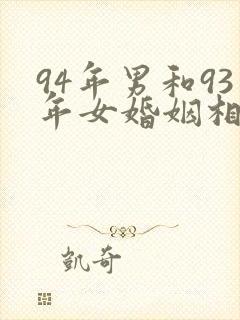 94年男和93
年女婚姻相
凯奇